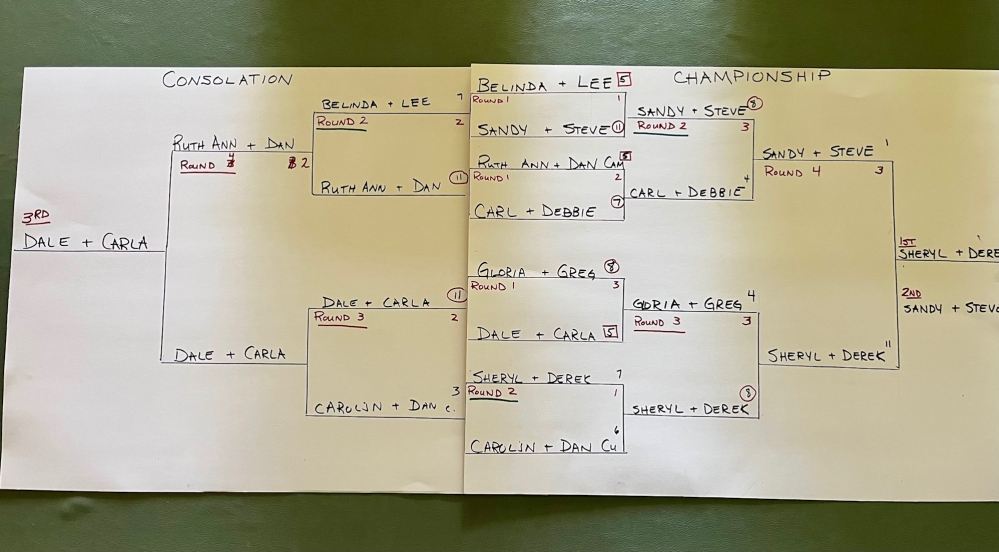 CONSOLATION
BELINDA + LEE 7
ROUND 2 2
RUTH ANN + DAN
ROUND 4 2
RUTH ANN + DAN 11
3RD
DALE + CARLA
DALE + CARLA 11
ROUND 3 2
DALE + CARLA
CAROLYN + DAN C. 3
CHAMPIONSHIP
BELINDA + LEE 5
ROUND 1 1
SANDY + STEVE 11
SANDY + STEVE 8
ROUND 2 3
RUTH ANN + DAN CAM 5
ROUND 1 2
CARL + DEBBIE 7
CARL + DEBBIE 4
SANDY + STEVE 1
ROUND 4 3
GLORIA + GREG 8
ROUND 1 3
DALE + CARLA 5
GLORIA + GREG 4
ROUND 3 3
SHERYL + DEREK 7
ROUND 2 1
CAROLYN + DAN CU 6
SHERYL + DEREK 8
SHERYL + DEREK 11
1ST
SHERYL + DERE
2ND
SANDY + STEV